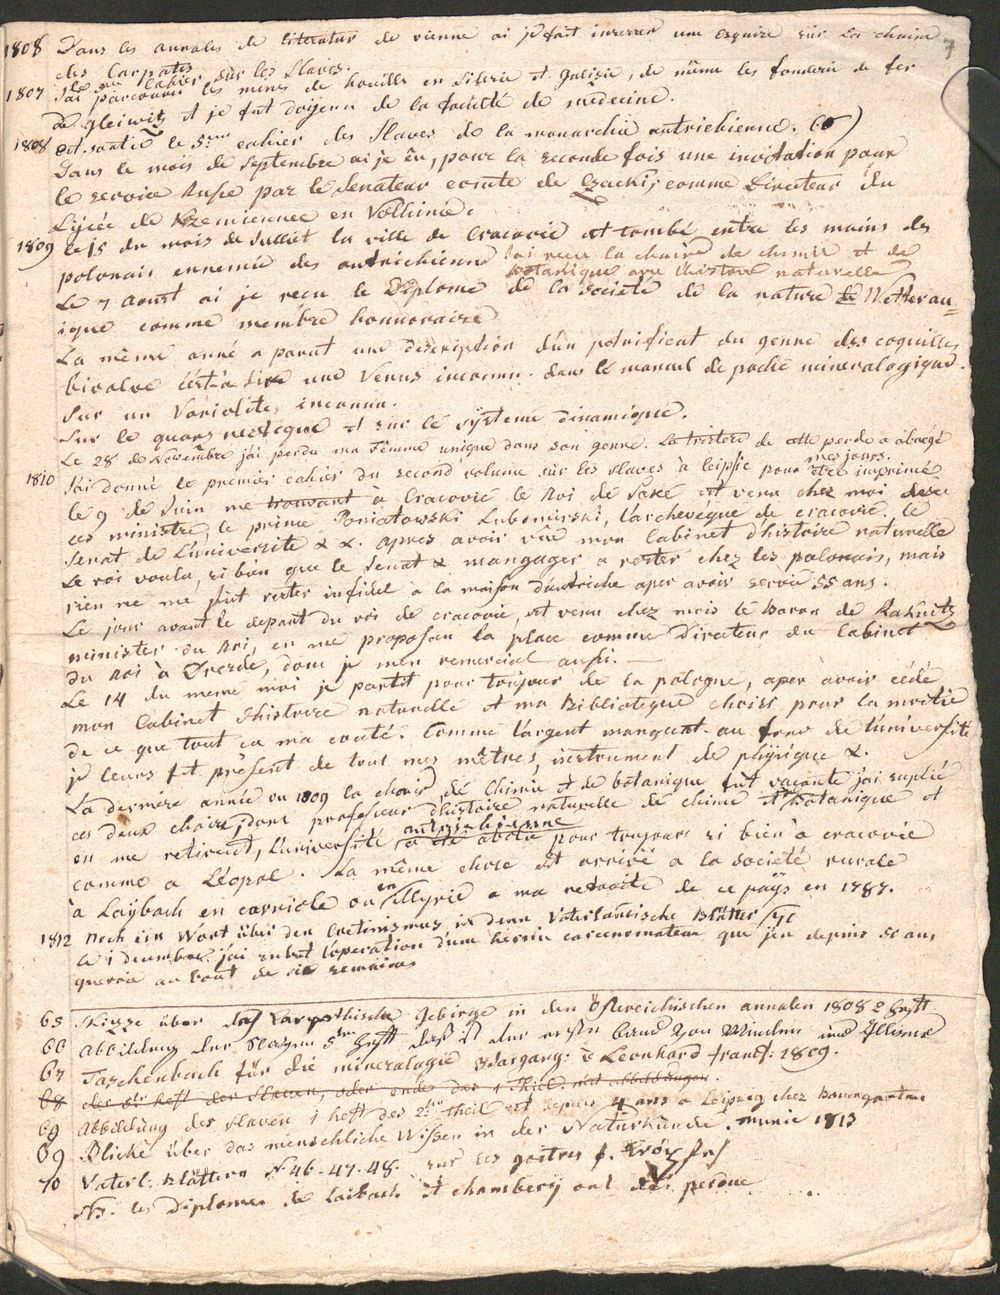 7
1808 Dans les annales de literatur de vienne ai je fait inserrer une Esquise sur la chaine
des Carpates
cahier sur les Slaves.
1807 J'ai parcouru les mines de houille en Silesie et Galizie, de même les fonderie de fer
de Gleiwitz et je fut doijenu de la société de médecine.
1808 est sortie le 5me cahier des Slaves de la monarchie autrichienne.
Dans le mois de Septembre ai je eu, pour la seconde fois une invitation pour
le service Russe par le Senateur comte de Czacki, comme Directeur du
Lÿcée de Kzemiennec en Volhinie.
1809 le 15 du mois de Julliet la ville de Cracovie est tombé entre les mains des
polonais ennemie des autrichienns j'ai reçu la chaire de chimie et de
botanique avec l'histoire naturelle
Le 7 aoust ai je recu le Diplome de la Societe de la nature de Wetterau=
ique comme membre honnoraire
La même anné a parut une description d'un petrificat du genre des coquilles
bivalve c'est-à dire une Venus inconnu. dans le manuel de poche mineralogique.
Sur un Variolite, inconnu.
Sur le quars nectique et sur le système dinamique.
Le 28 de Novembre j'ai perdu ma Femme unique dans son genre. La tristesse de cette perde a abregé
mes jours.
1810 J'ai donné le premier cahier du second volume sur les slaves à leipsic pour être imprimé
le 9 de Juin me trouvant a Cracovie le Roi de Saxe est venu chez moi avec
ces ministre, le prince Poniatowski Lubomirski, l'archevêque de cracovie, le
Senat de L'université & &. apres avoir vue mon Cabinet d'histoire naturelle
Le roi voulu, si bien que le Senat & m'angager a rester chez les polonais, mais
rien ne me fut rester infidel a la maison d'autriche aper avoir servie 55 ans.
Le jour avant le depart du roi de cracovie, est venu chez mois le Baron de Raknitz
minister du Roi, en me proposan la place comme Directeur du Cabinet
du Roi à Dresde, donc je m'en remercial aussi.
Le 14 du meme moi je partit pour toujour de la pologne, aper avoir cédé
mon Cabinet d'histoire naturelle et ma Biblioteque choisi pour la moitié
de ce que tout ca ma couté. Comme l'argent manquent au fond de l'université
je leurs fit présent de tout mes mêtres, instrument de phÿsique &.
La dernere année ou 1809 la chaire de Chimie et de botanique fut vacante j'ai suplié
ces deux chaire, donc professeur d'histoire naturelle de chimie et botanique et
en me retirent, l'université autrichienne a été abolie pour toujours si bien à cracovie
comme a Léopol. La même chose est arrivé a la société rurale
à Laÿbach en carniole ou en Illyrie a ma retraite de ce paÿs en 1787.
1812 Noch ein Wort über den Cretinismus, in denn Vaterlandische Blätter
Le 1 decembre j'ai subit l'operation d'une hernie carcenomateux que j'eu depuis 50 ans,
guerrie au bout de six semaines
65 Skizze über das Karpathische Gebirge in den Östereichischen annalen 1808 2 Heft
66 Abbildung der Slaven 5ter Heft
67 Taschenbuch für die mineralogie 3 Jargang: v Leonhard frankf. 1809.
68 des 5ter heft der Slaven, oder ende des 1 Theil. mit abbildungen.
69 Abbildung der Slaven 1 heft des 2ter Theil est depuis 4 ans a Leipzig chez Baumgarten
69 Blicke über das menschliche Wissen in der Naturkunde. munic 1813
70 Vaterl. Blättern N 46-47-48. sur les goitres
NB: les Diplomes de Laibach et Chambery ont été perdue